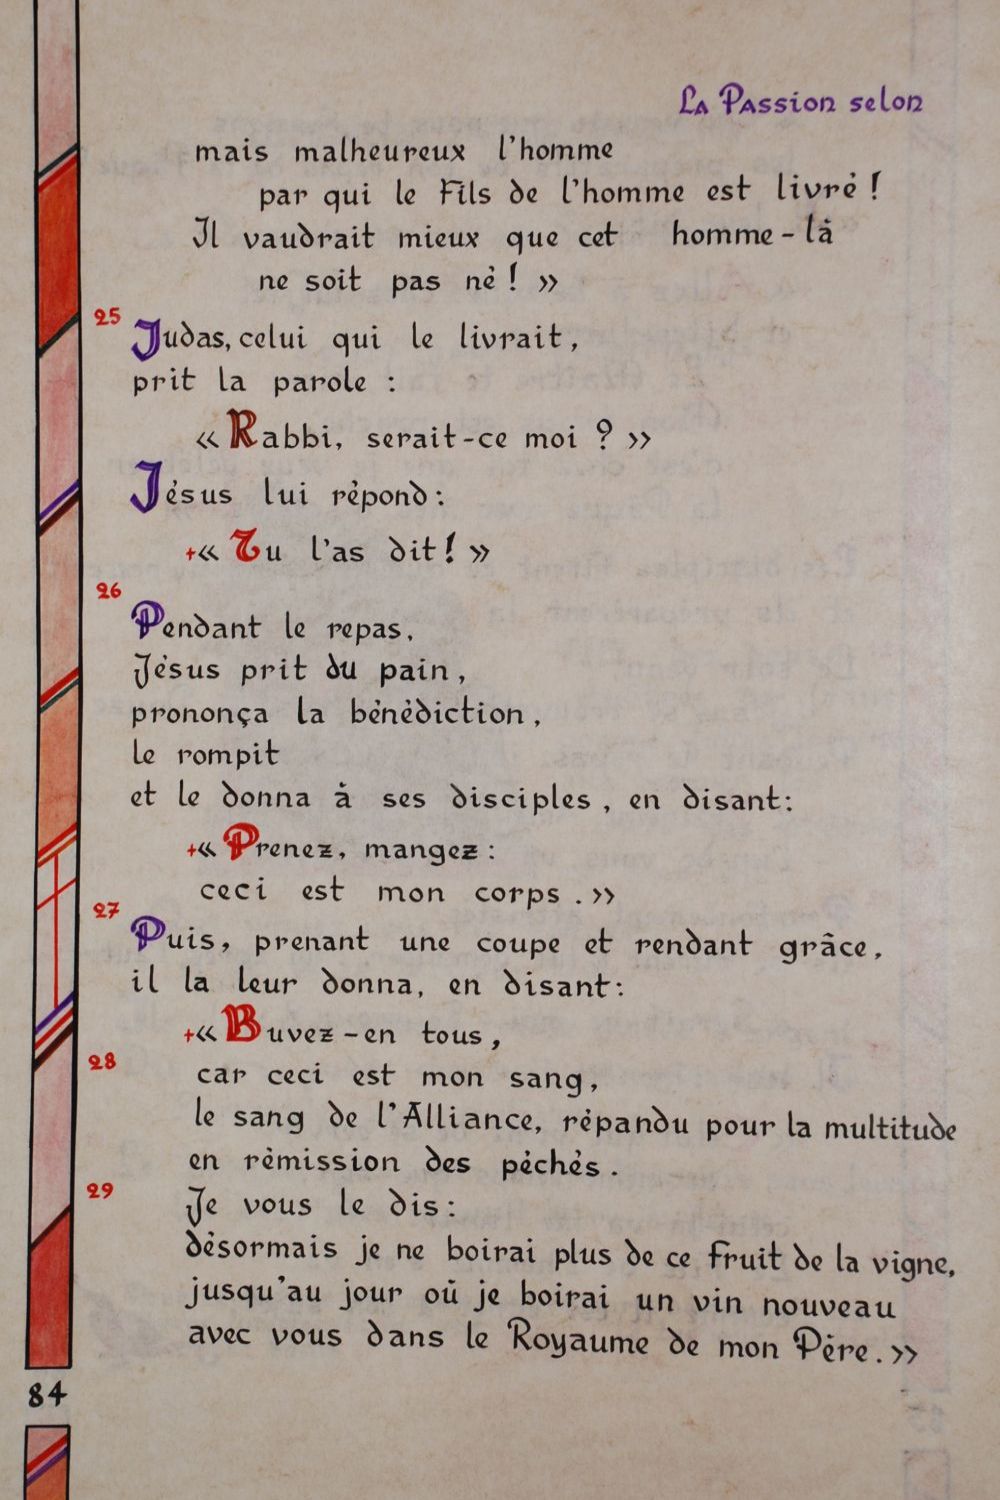 La Passion selon
mais malheureux l'homme
par qui le Fils de l'homme est livré !
Il vaudrait mieux que cet homme-là
ne soit pas né ! »
25
Judas, celui qui le livrait,
prit la parole :
« Rabbi, serait-ce moi ? »
Jésus lui répond :
+« Tu l'as dit ! »
26
Pendant le repas,
Jésus prit du pain,
prononça la bénédiction,
le rompit
et le donna à ses disciples, en disant :
+« Prenez, mangez :
ceci est mon corps . »
27
Puis, prenant une coupe et rendant grâce,
il la leur donna, en disant :
+« Buvez-en tous,
28
car ceci est mon sang,
le sang de l'Alliance, répandu pour la multitude
en rémission des péchés .
29
Je vous le dis :
désormais je ne boirai plus de ce fruit de la vigne,
jusqu'au jour où je boirai un vin nouveau
avec vous dans le Royaume de mon Père . »
84